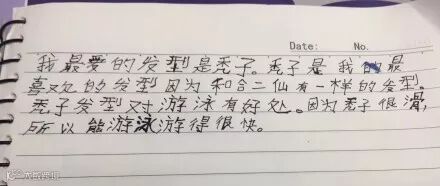 Date:      No.
我最爱的发型是秃子。秃子是我的最
喜欢的发型因为和合二仙有一样的发型.
秃子发型对游泳有好处。因为秃子很滑,
所以能游泳游得很快。